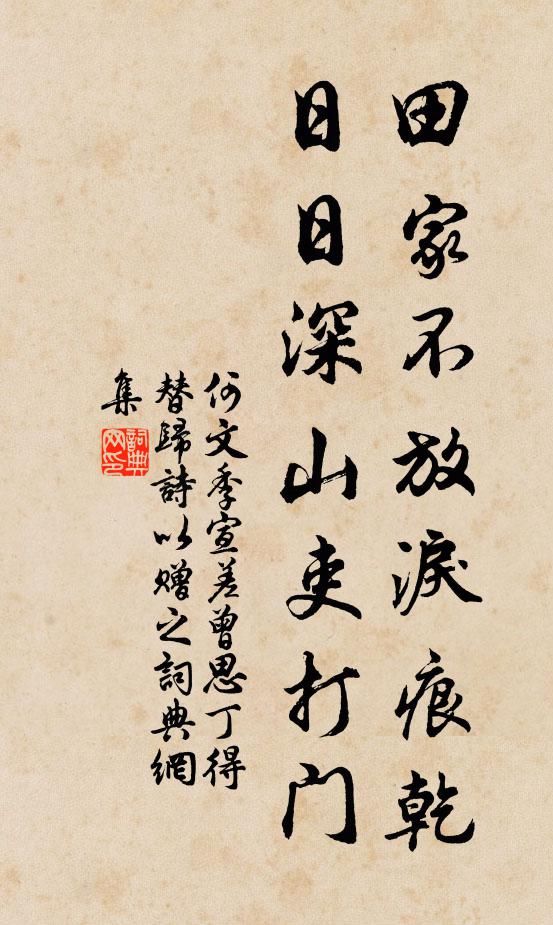 田家不放淚痕乾
日日深山吏打門
何文季宣差曾思丁得
替歸詩以贈之詞典網
集
詞典
网印